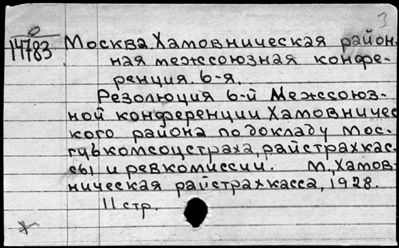 3
14783
Москва. Хамовническая район-
ная межсоюзная конфе-
ренция. 6-я.
Резолюция 6-й Межсоюз-
ной конференции Хамовничес
кого района по докладу Мос-
губкомсоцстраха, райстрахкас-
сы и ревкомиссии. М., Хамов-
ническая райстрахкасса, 1928.
11 стр.